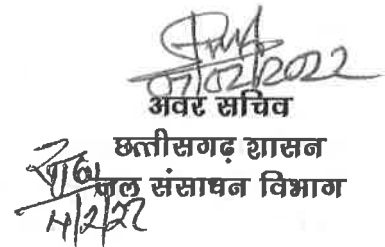 07/02/2022
अवर सचिव
छत्तीसगढ़ शासन
जल संसाधन विभाग
4/2/22